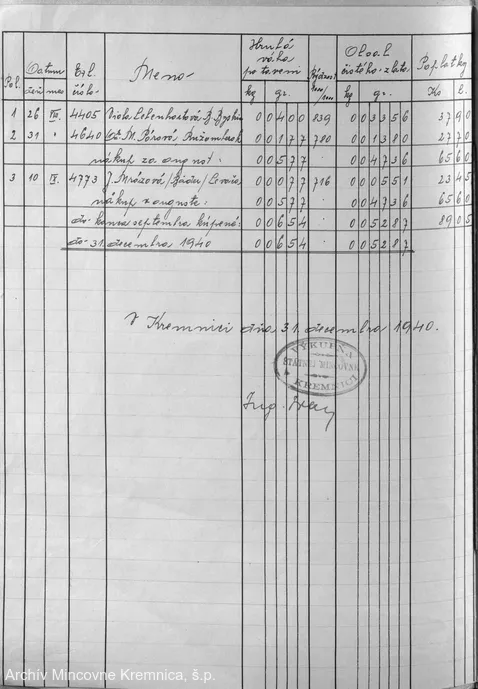 Pol. Dátum deň mes. Erl. číslo Meno Hrubá váha po tavení kg gr. Rýdzosť Obsah čistého zlata kg gr. Poplatky Ks h.
1 26 VIII. 4405 B. Bystrica 0 0 4 0 0 839 0 0 3 3 5 6 37 90
2 31 " 4640 M. Ružomberok 0 0 1 7 7 780 0 0 1 3 8 0 27 70
nákup za august: 0 0 5 7 7 . 0 0 4 7 3 6 65 60
3 10 IX. 4773 J. Mrázová 0 0 0 7 7 716 0 0 0 5 5 1 23 45
nákup v auguste: 0 0 5 7 7 . 0 0 4 7 3 6 65 60
do konca septembra kúpené: 0 0 6 5 4 . 0 0 5 2 8 7 89 05
do 31. decembra 1940 0 0 6 5 4 . 0 0 5 2 8 7
V Kremnici dňa 31. decembra 1940.
VÝKUPŇA
ŠTÁTNEJ MINCOVNE
KREMNICI
Ing.
Archív Mincovne Kremnica, š.p.